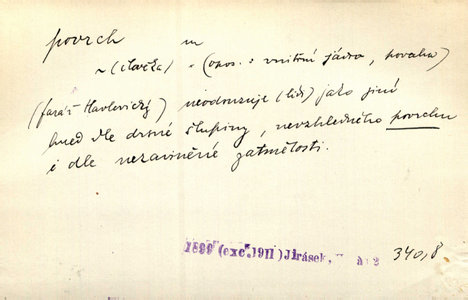 povrch m
~ (člověka) ~ (opos. : vnitřní jádro, povaha)
(farář Havlovický) neodsuzuje (lidi) jako jiní
hned dle drsné slupiny, nevzhledného povrchu
i dle nezaviněné zatmělosti.
1899 (exc. 1911) Jirásek, 340,8